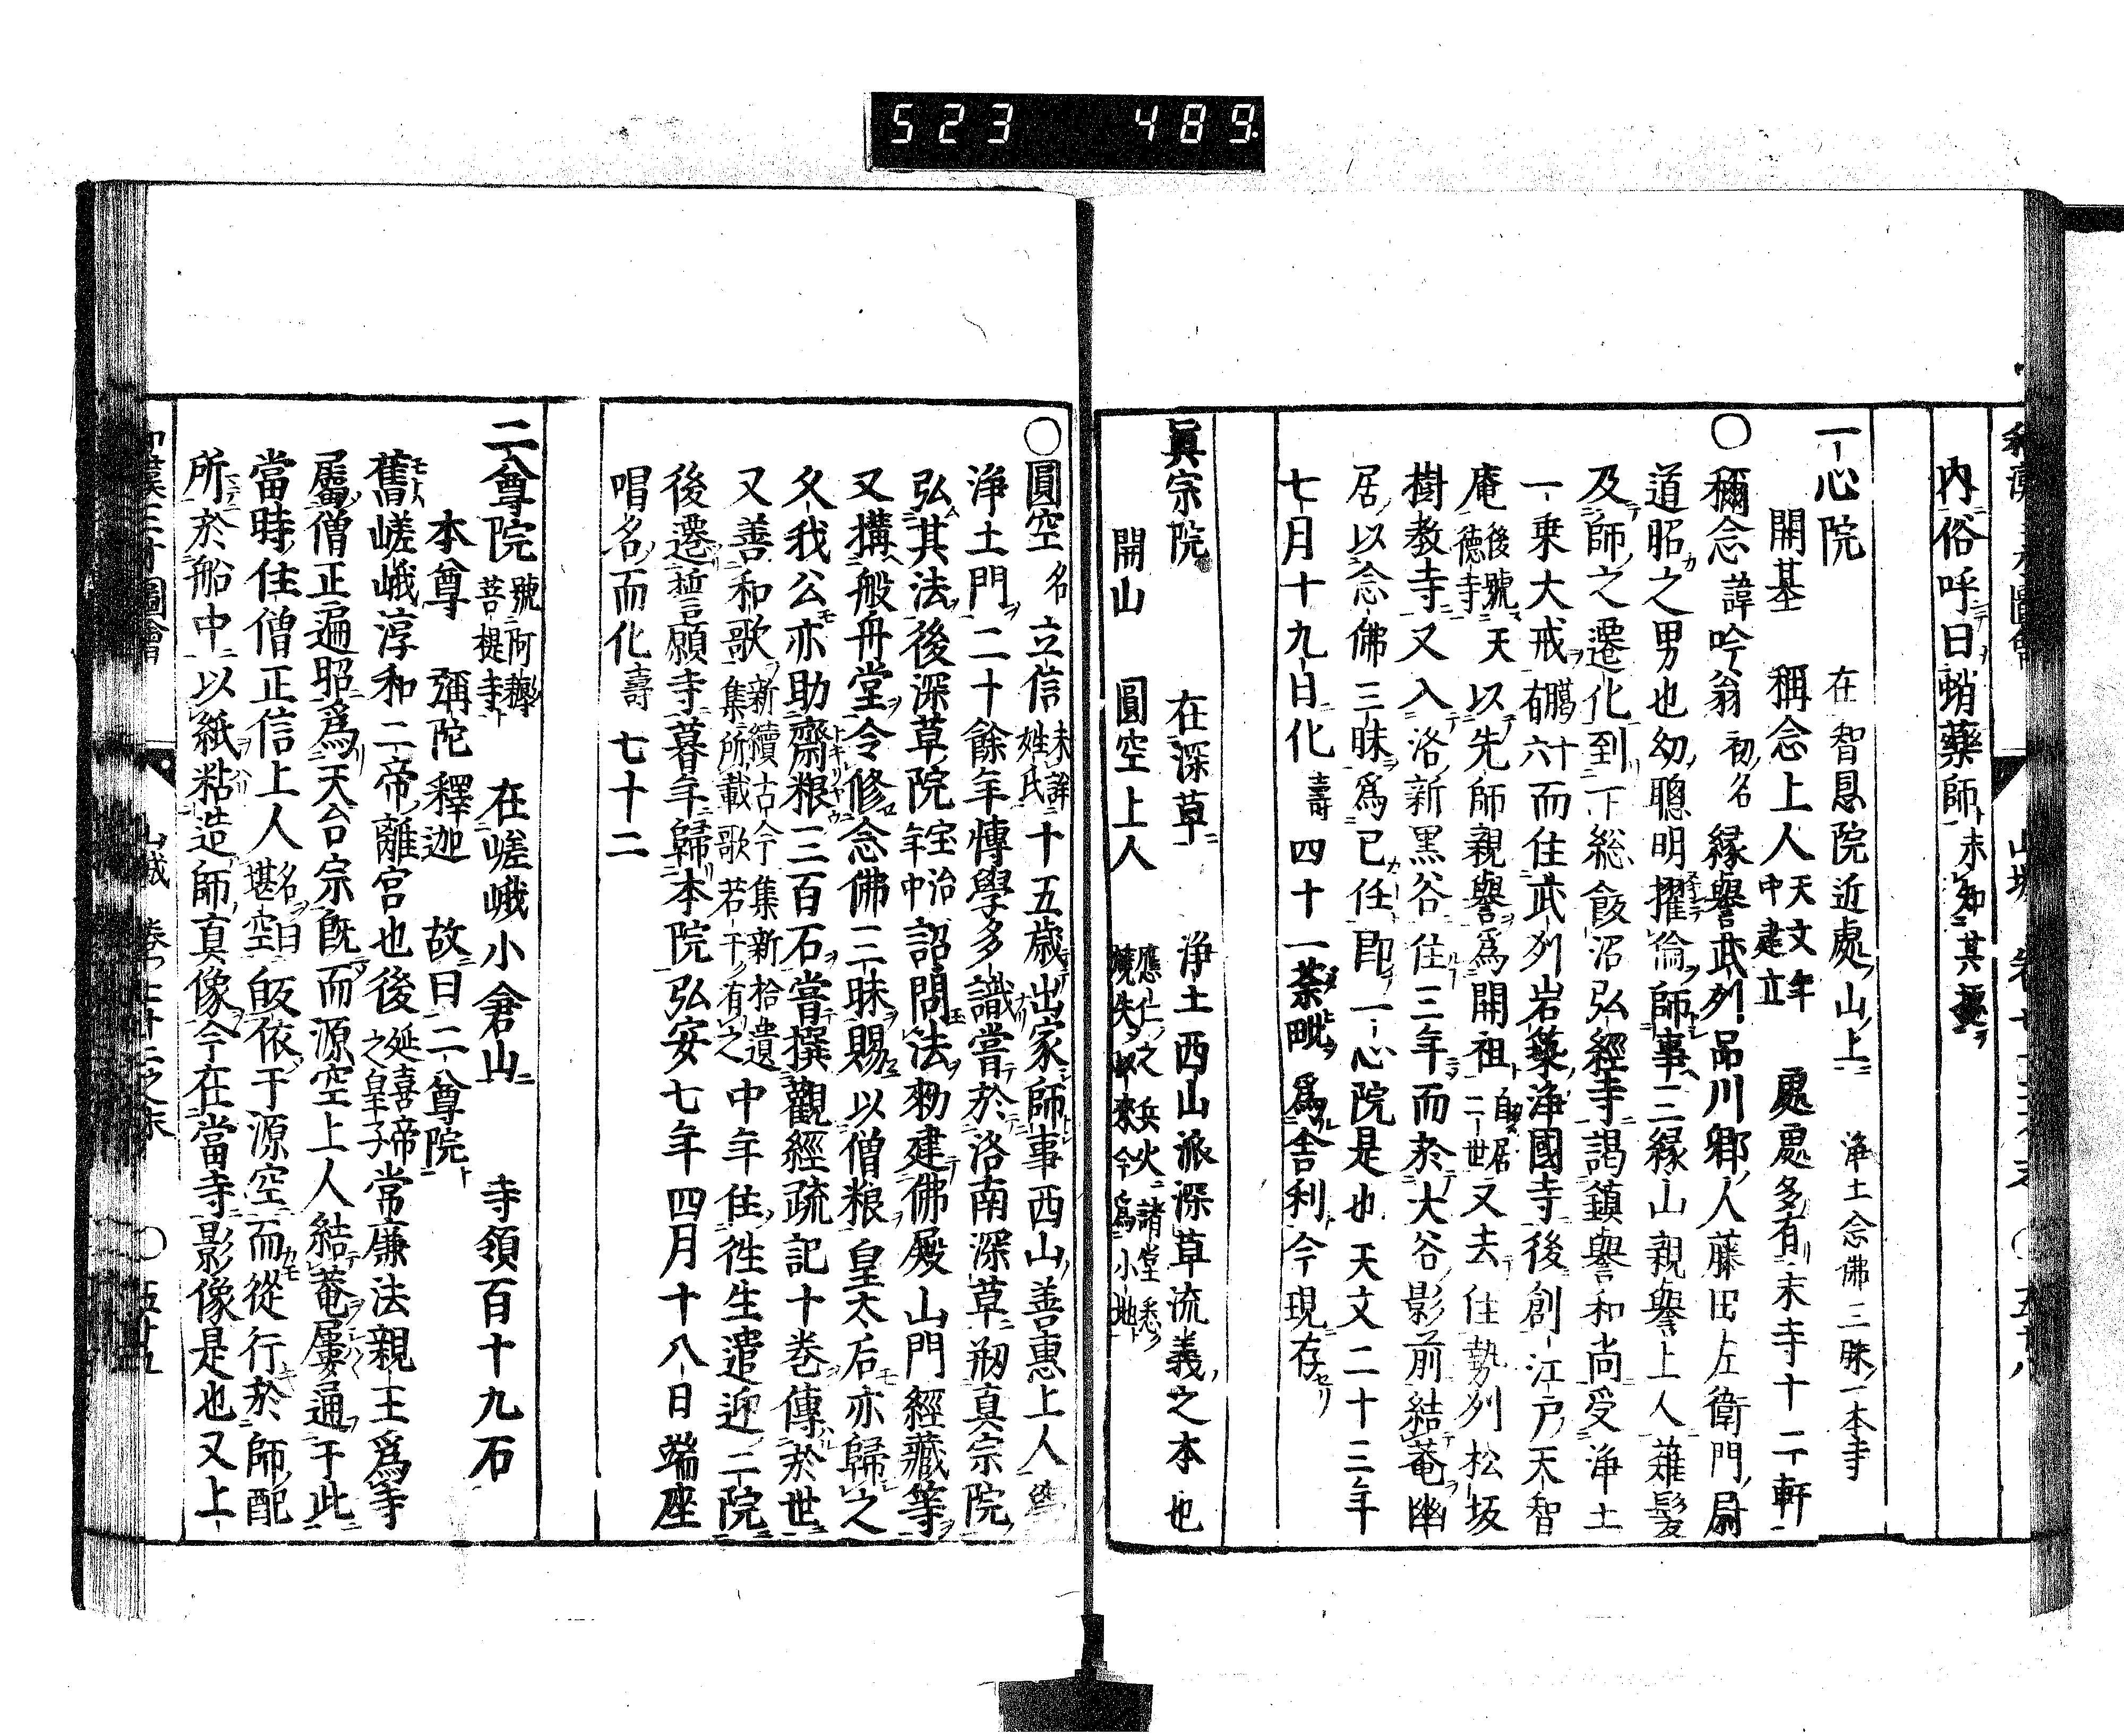 523 489
内俗呼曰蛸藥師未知其據
一心院 在智恩院近處山上 淨土念佛三昧一本寺
開基 稱念上人 天文年中建立 處處多有末寺十二軒
〇稱念 諱吟翁 初名 縁譽武列品川郷人藤田左衛門尉
道昭之男也幼聰明擢倫師事三縁山親譽上人薙髮
及師之遷化到下総飯沼弘經寺謁鎮譽和尚受淨土
一乗大戒有臈六十而住武列岩築淨國寺後創江戸天智
庵後號天徳寺 以先師親譽爲開祖自居二世又去住勢列松坂
樹教寺又入洛新黒谷住三年而於大谷影前結菴幽
居以念佛三昧爲已任即一心院是也天文二十三年
七月十九日化 壽四十一 荼毗爲舎利今現存
眞宗院 在深草 淨土西山派深草流義之本也
開山 圓空上人 應仁之兵火諸堂悉燒失 以來今爲小地
〇圓空 名立信 未詳姓氏 十五歳出家師事西山善惠上人
浄土門二十餘年博學多識嘗於洛南深草剏真宗院
弘其法後深草院宝治年中詔問法勅建佛殿山門經藏等
又搆般舟堂令修念佛三昧賜以僧粮皇太后亦歸之
久我公亦助齋粮三百石嘗撰觀經疏記十巻傳於世
又善和歌 新續古今集新拾遺集所載歌若干有之 中年住徃生遣迎二院
後遷誓願寺暮年歸本院弘安七年四月十八日端座
唱名而化 壽七十二
二尊院 號阿 菩提寺 在嵯峨小倉山 寺領百十九石
本尊 彌陀釋迦 故曰二尊院
舊嵯峨淳和二帝離宮也後延喜帝之皇子常康法親王爲寺
屬僧正遍昭爲天台宗既而源空上人結菴屢通于此
當時住僧正信上人 名曰堪空 皈依于源空而從行於師配
所於船中以紙粘造師真像今在當寺影像是也又上